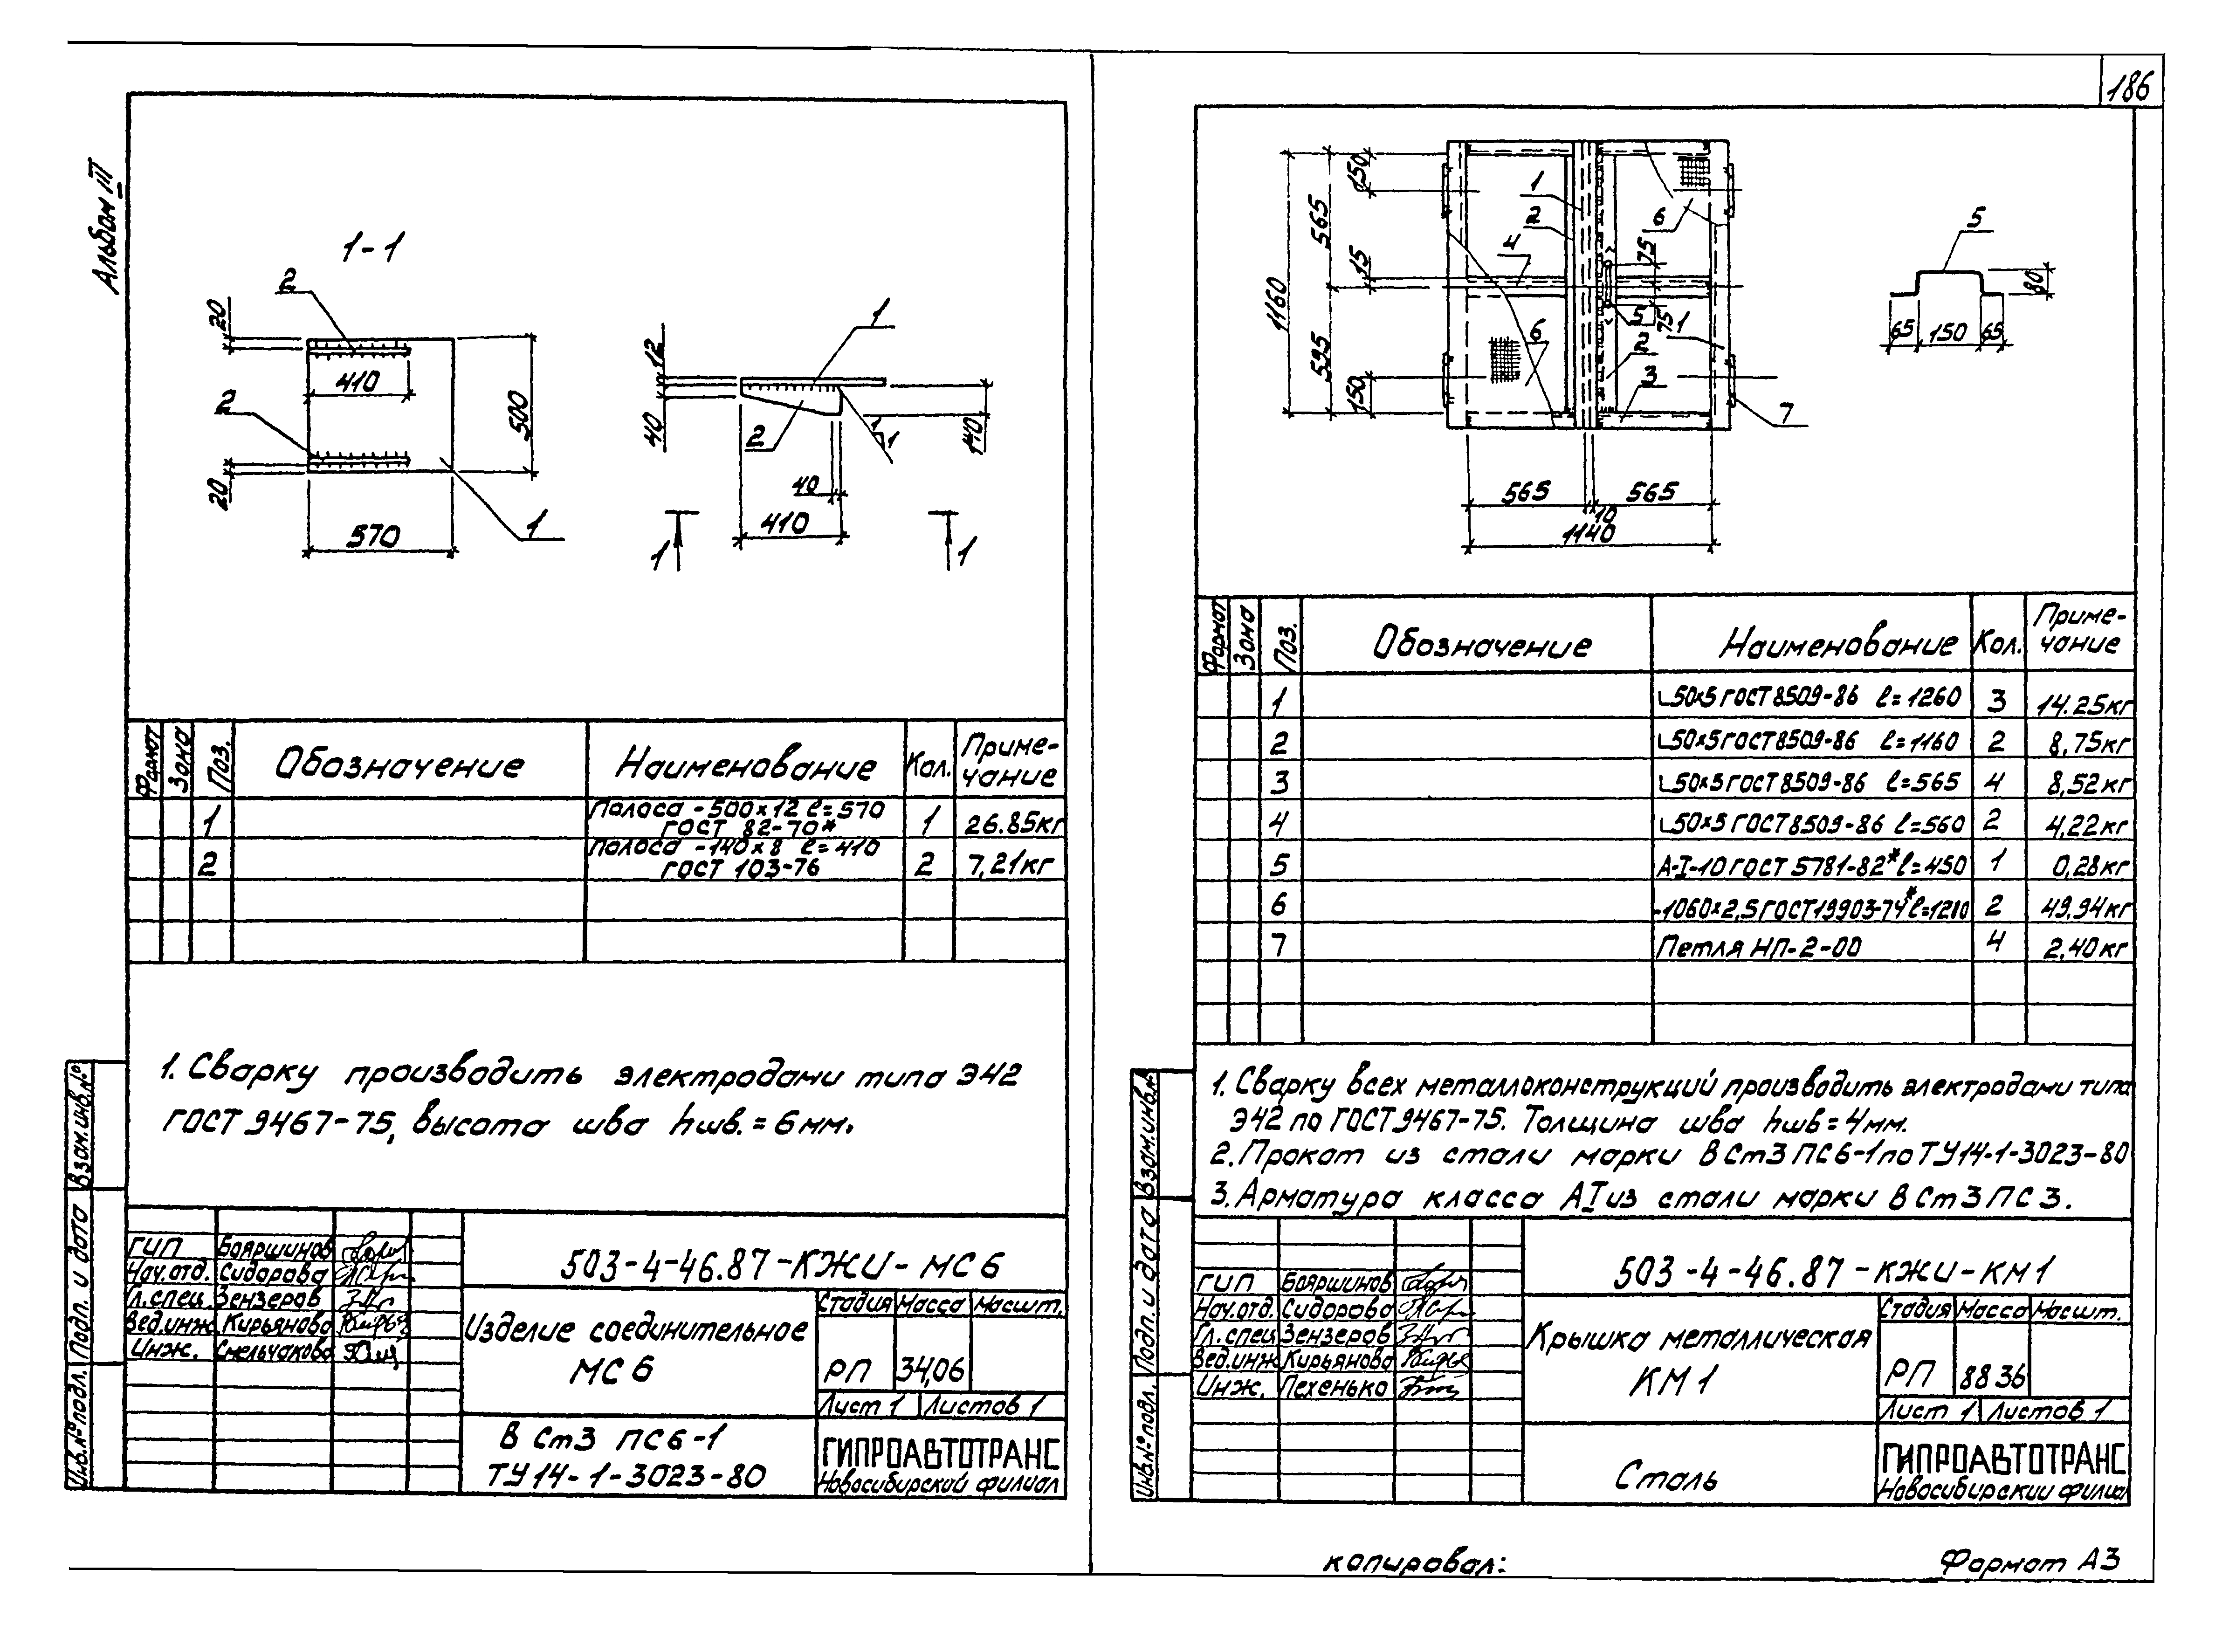 186
Альбом III
1-1
2
20
410
2
500
20
1
570
1
12
40
2
140
1
1
40
410
1
1
Формат Зона Поз. Обозначение Наименование Кол. Приме-чание
1 Полоса -500×12 ℓ=570 ГОСТ 82-70* 1 26.85кг
2 Полоса -140×8 ℓ=410 ГОСТ 103-76 2 7,21кг
1. Сварку производить электродами типа Э42
ГОСТ 9467-75, высота шва hшв.=6мм.
503-4-46.87-КЖИ-МС6
ГИП Бояршинов
Нач.отд. Сидорова
Гл.спец. Зензеров
Вед.инж. Кирьянова
Инж. Смельчакова
Изделие соединительное
МС6
Стадия Масса Масшт.
РП 34,06
Лист 1 Листов 1
В Ст3 ПС6-1
ТУ14-1-3023-80
ГИПРОАВТОТРАНС
Новосибирский филиал
Взам.инв.№
Подп. и дата
Инв.№ подл.
150
565
1160
15
595
150
1
2
4
6
75
5
75
1
6
2
3
7
565 565
10
1140
5
80
65 150 65
Формат Зона Поз. Обозначение Наименование Кол. Приме-чание
1 ∟50×5 ГОСТ 8509-86 ℓ=1260 3 14.25кг
2 ∟50×5 ГОСТ 8509-86 ℓ=1160 2 8,75кг
3 ∟50×5 ГОСТ 8509-86 ℓ=565 4 8,52кг
4 ∟50×5 ГОСТ 8509-86 ℓ=560 2 4,22кг
5 А-I-10 ГОСТ 5781-82* ℓ=450 1 0,28кг
6 -1060×2,5 ГОСТ 19903-74* ℓ=1210 2 49,94кг
7 Петля НП-2-00 4 2,40кг
1. Сварку всех металлоконструкций производить электродами типа
Э42 по ГОСТ 9467-75. Толщина шва hшв=4мм.
2. Прокат из стали марки В Ст3 ПС6-1 по ТУ14-1-3023-80
3. Арматура класса АI из стали марки В Ст3 ПС3.
503-4-46.87-КЖИ-КМ1
ГИП Бояршинов
Нач.отд. Сидорова
Гл.спец Зензеров
Вед.инж Кирьянова
Инж. Пехенько
Крышка металлическая
КМ1
Стадия Масса Масшт.
РП 88 36
Лист 1 Листов 1
Сталь
ГИПРОАВТОТРАНС
Новосибирский филиал
Взам.инв.№
Подп. и дата
Инв.№ подл.
копировал:
Формат А3